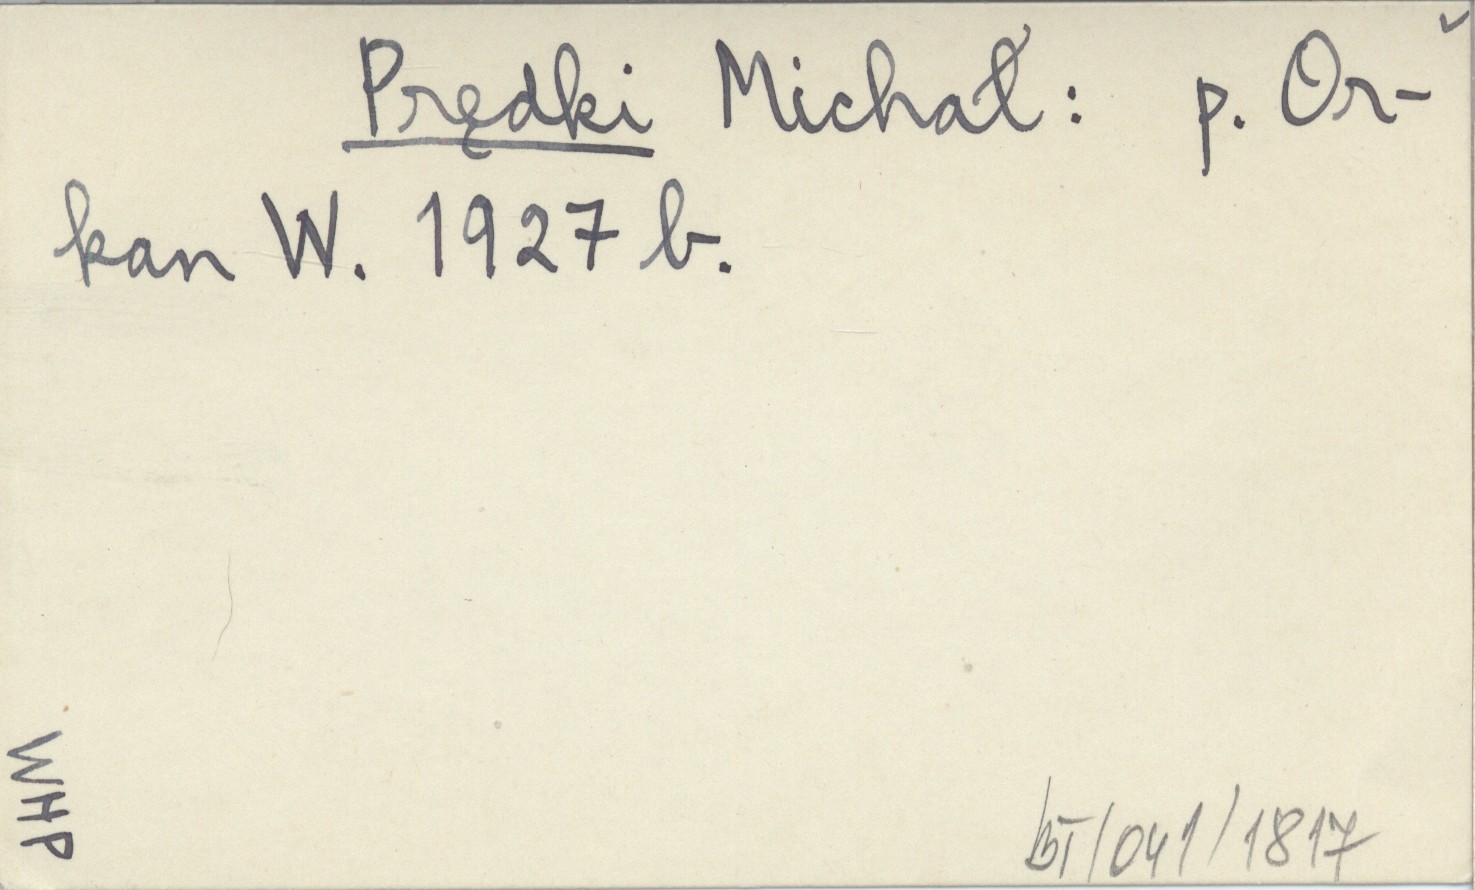 Prędki Michał: p. Or-
kan W. 1927 b.
WHP
BT/041/1817